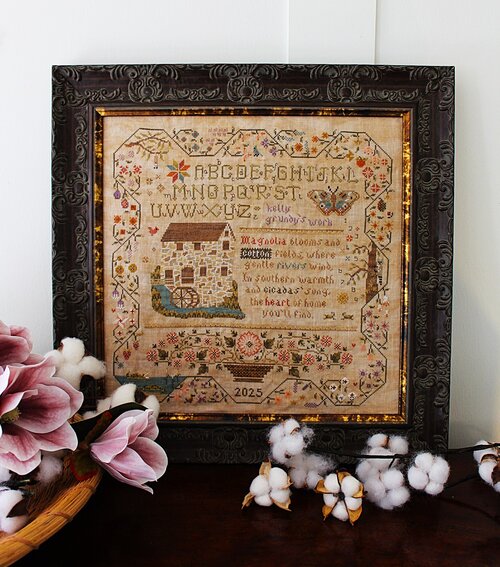 ABCDEFGHIJKL
MNOPQRST
UVWXYZ
kelly
grundy's work
Magnolia blooms and
cotton fields, where
gentle rivers wind.
In southern warmth
and cicadas' song,
the heart of home
you'll find.
2025